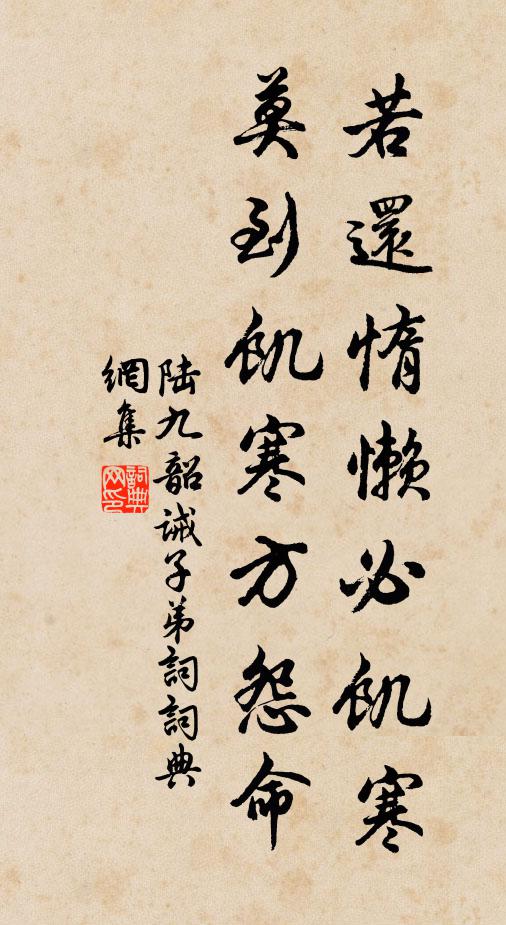 若還惰懶必飢寒
莫到飢寒方怨命
陆九韶诫子弟詞詞典
網集
詞典
网印